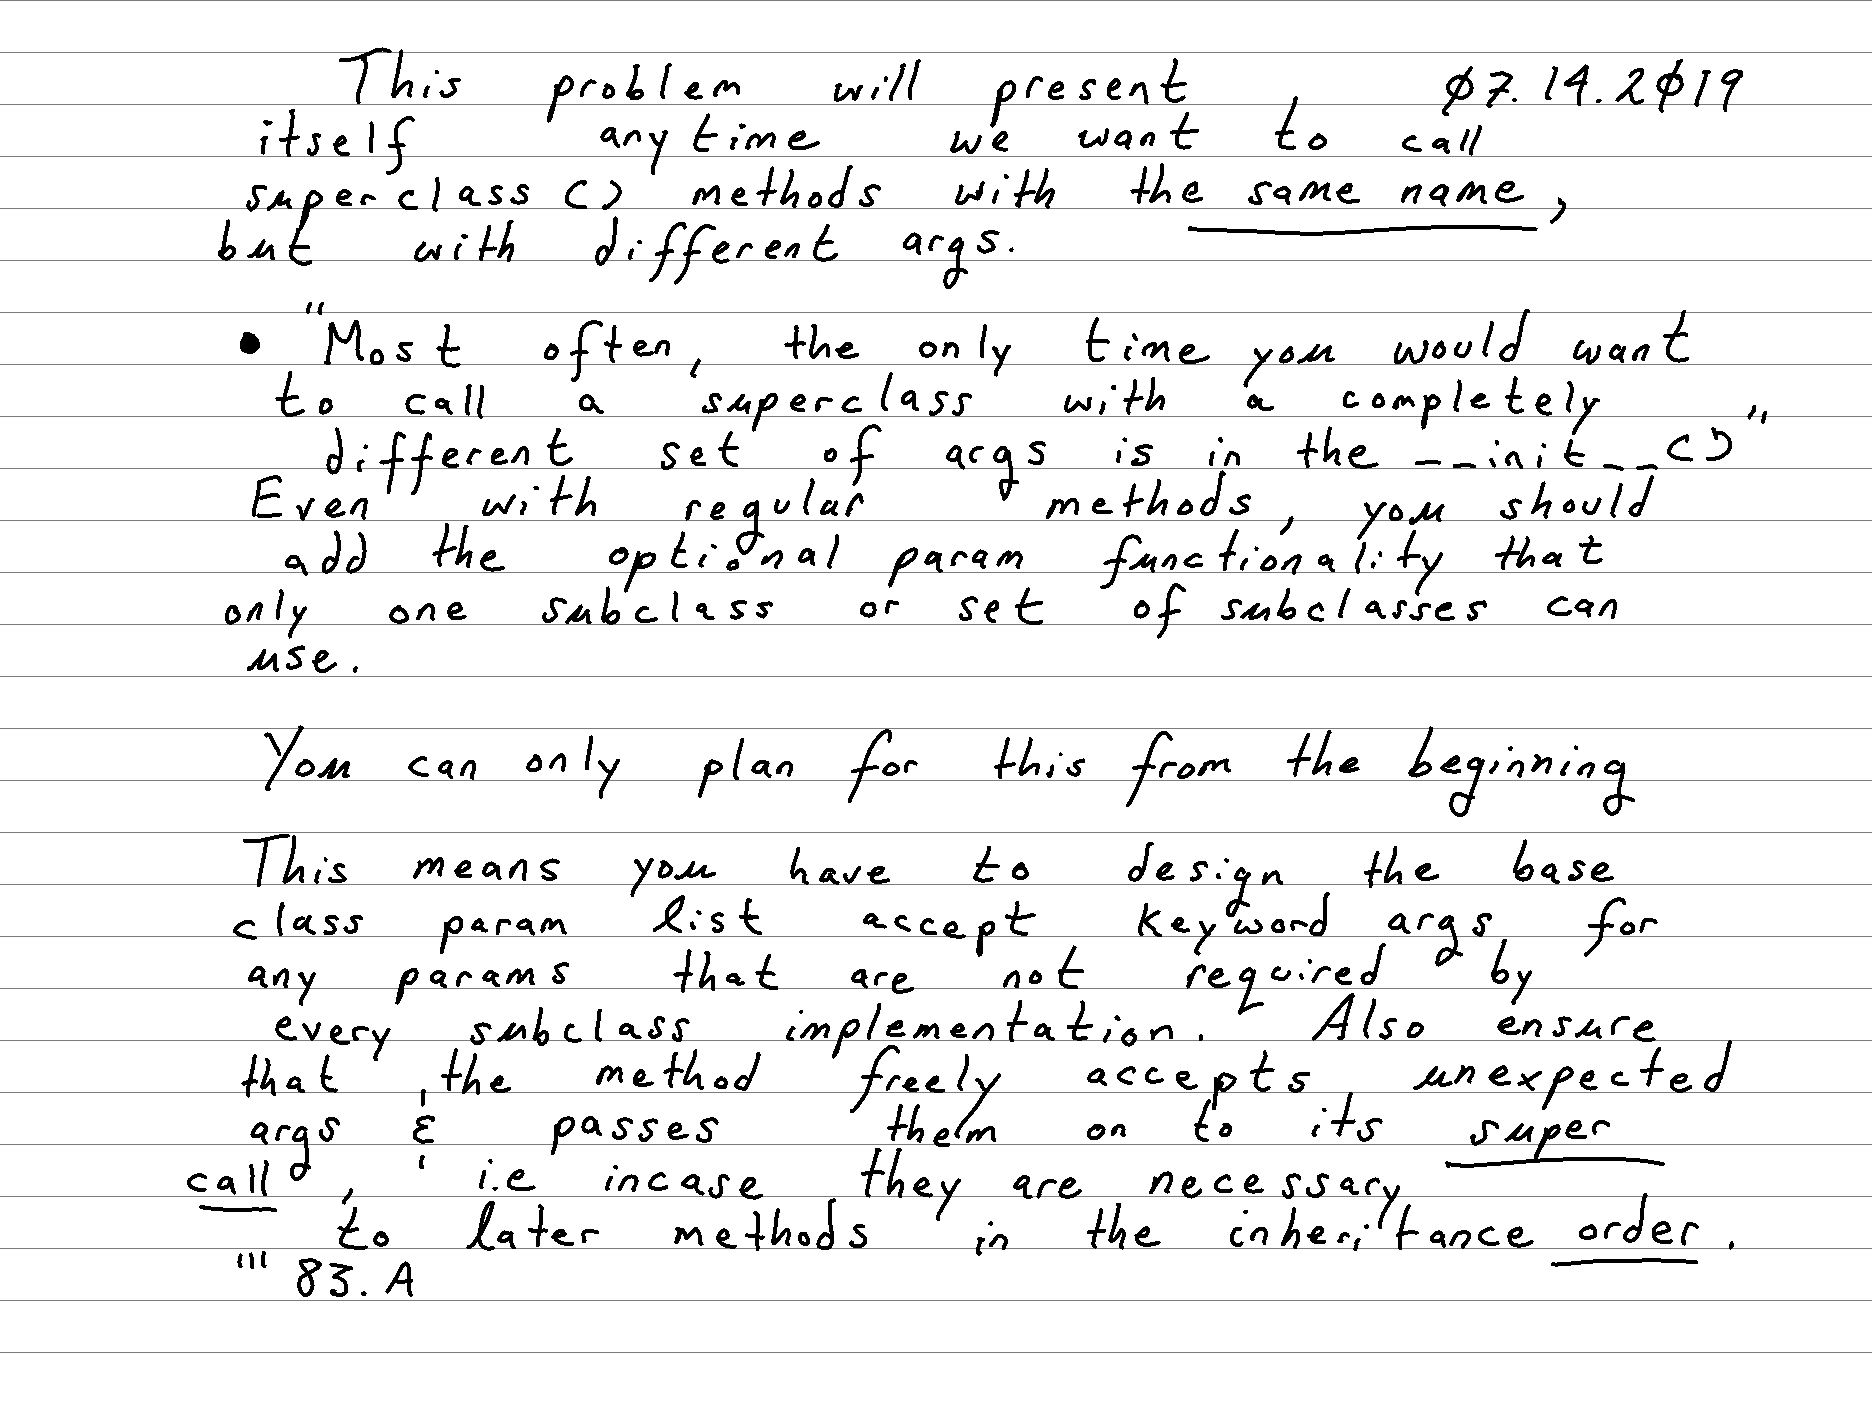 This problem will present , Ø7.14.2Ø19
itself anytime we want to call
superclass () methods with the same name,
but with different args.
• "Most often, the only time you would want
to call a superclass with a completely
different set of args is in the __init__()"
Even with regular methods, you should
add the optional param functionality that
only one subclass or set of subclasses can
use.
You can only plan for this from the beginning
This means you have to design the base
class param list accept keyword args for
any params that are not required by
every subclass implementation. Also ensure
that the method freely accepts unexpected
args & passes them on to its super
call, i.e incase they are necessary
to later methods in the inheritance order.
''' 83.A